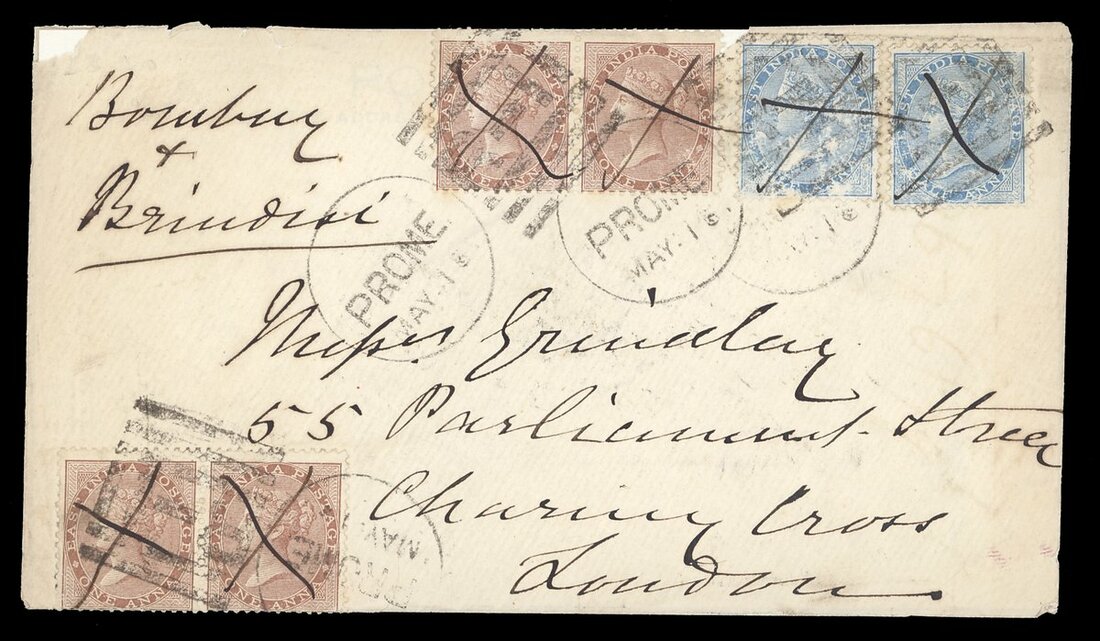 Bombay
&
Brindisi
EAST INDIA POSTAGE
ONE ANNA
EAST INDIA POSTAGE
ONE ANNA
EAST INDIA POSTAGE
HALF ANNA
EAST INDIA POSTAGE
HALF ANNA
PROME
MAY-1
PROME
MAY-1
MAY-1
Messrs Grindlay
55 Parliament Street
Charing Cross
London
EAST INDIA POSTAGE
ONE ANNA
EAST INDIA POSTAGE
ONE ANNA
PROME
MAY